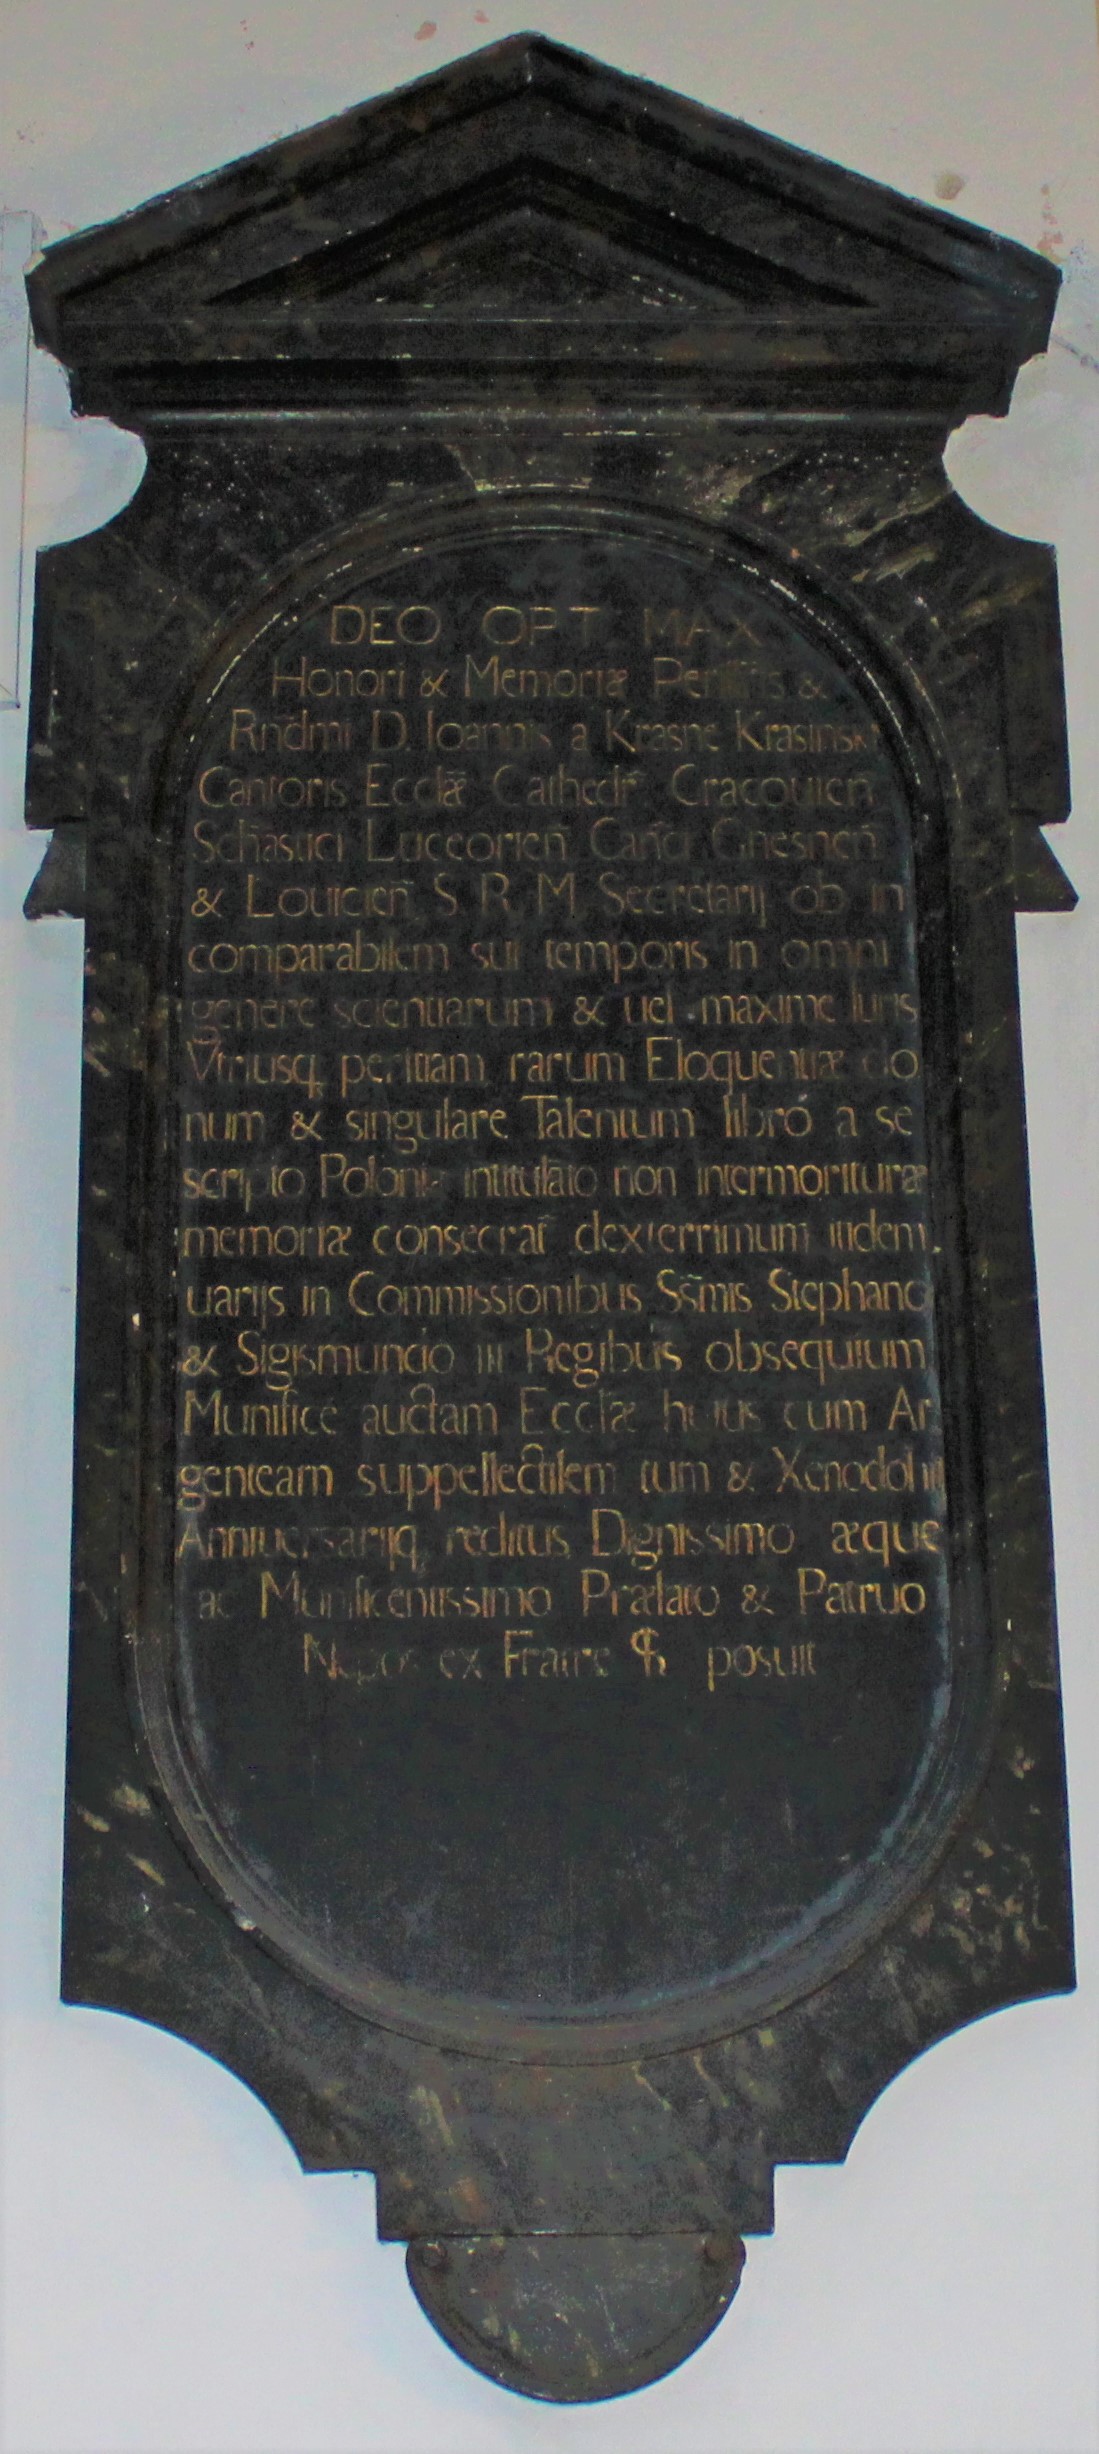 DEO OPT MAX
Honori & Memoriæ &
Rn̄dmi D. Ioannis a Krasne Krasinski
Cantoris Eccl̄æ Cathedr̄ Cracouien̄
Sch̄astici Luceorien̄ Can̄ci Gnesnen̄
& Louicien̄ S. R. M. Secretarij ob in
comparabilem sui temporis in omni
genere scientiarum & uel maxime Iuris
Vtriusq, peritiam rarum Eloquentiæ do
num & singulare Talentum libro a se
scripto Polonia intitulato non intermorituræ
memoriæ consecrat̄ dexterrimum itidem
uarijs in Commissionibus Ss̄mis Stephano
& Sigismundo III Regibus obsequium
Munifice auctam Eccl̄æ huius cum Ar
genteam suppellectilem tum & Xenodochij
Anniuersarijq, reditus Dignissimo æque
ac Munificentissimo Prælato & Patruo
Nepos ex Fratre posuit